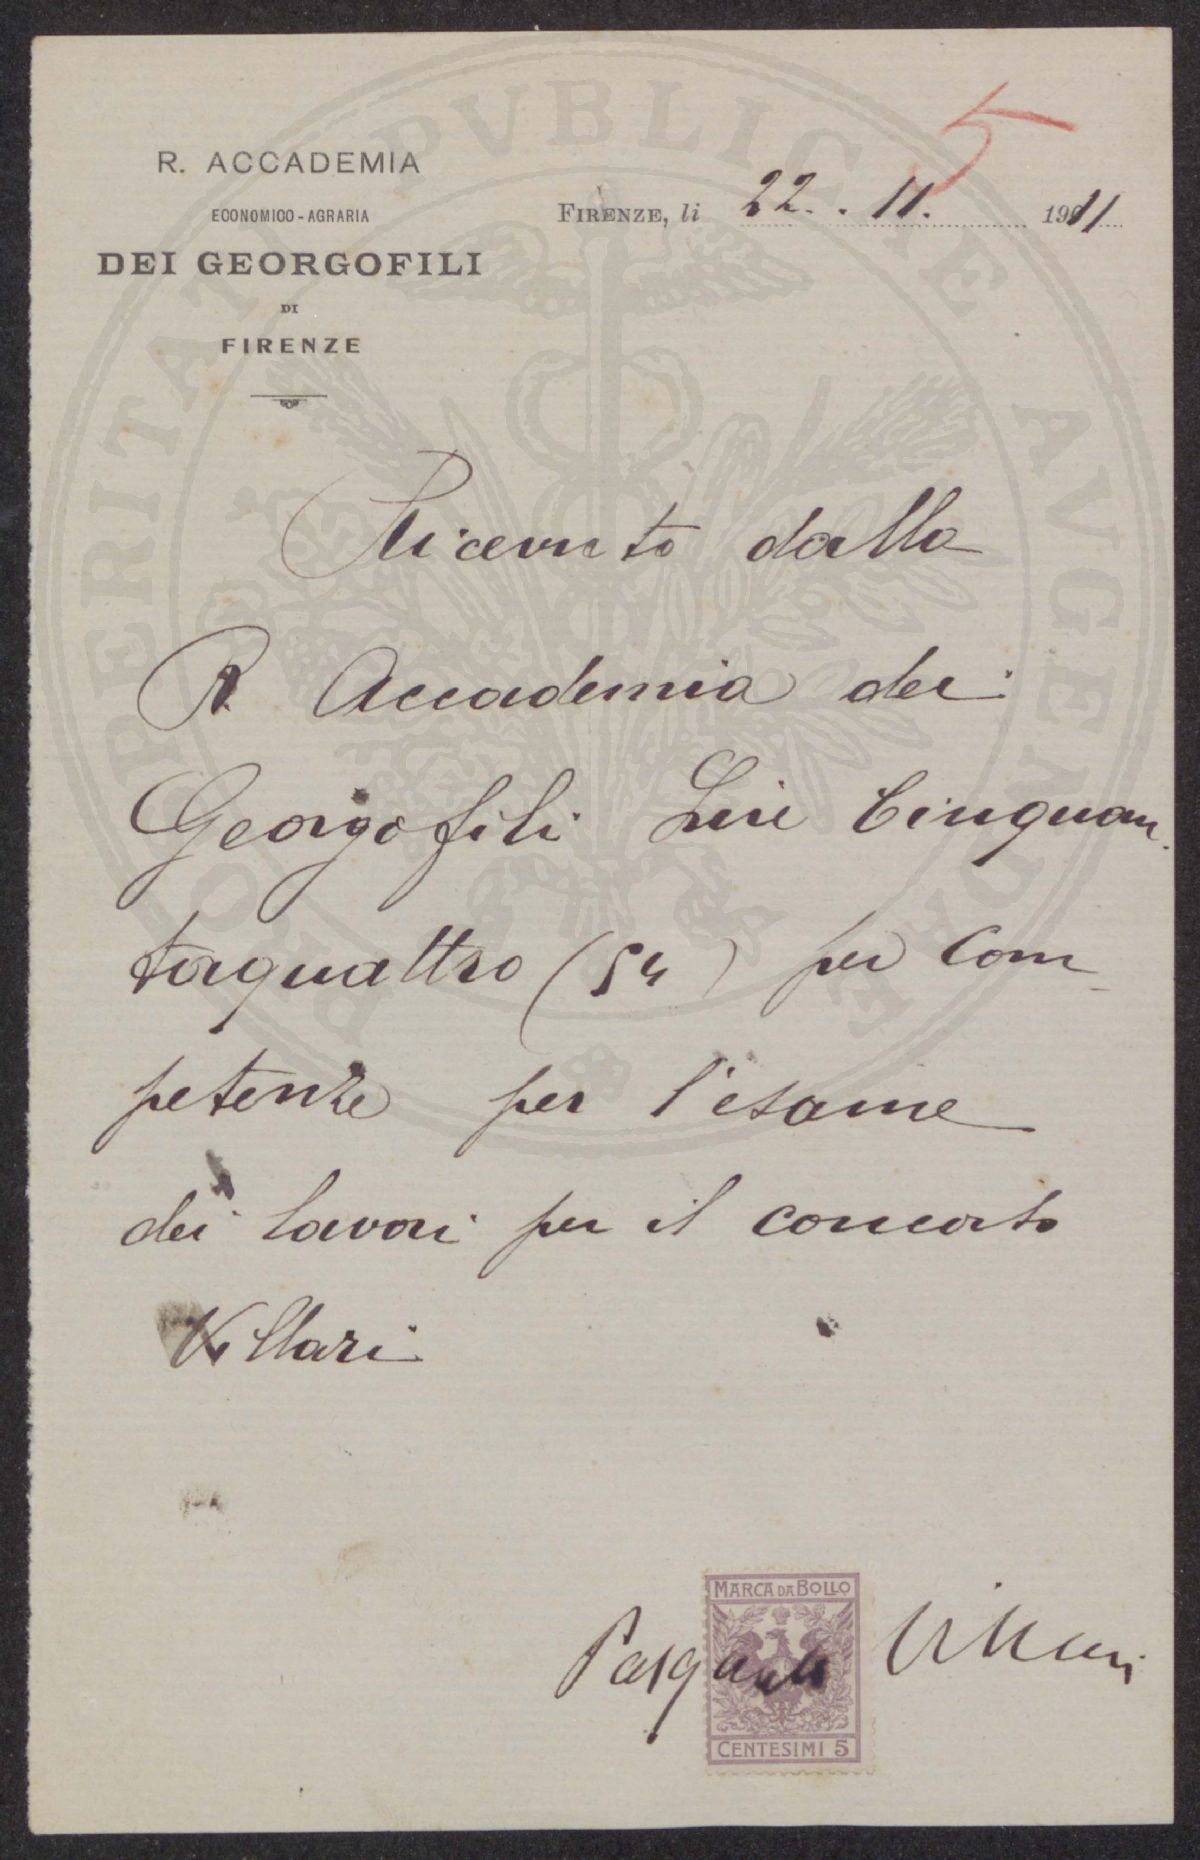 5
R. ACCADEMIA
ECONOMICO-AGRARIA
DEI GEORGOFILI
DI
FIRENZE
FIRENZE, li 22. . 11. 1911
PROSPERITATI PVBLICAE AVGENDAE
Ricevuto dalla
R. Accademia dei
Georgofili Lire Cinquan-
taquattro (54) per com-
petenze per l'esame
dei lavori per il concorso
Villari
MARCA DA BOLLO
Pasquale Villari
CENTESIMI 5